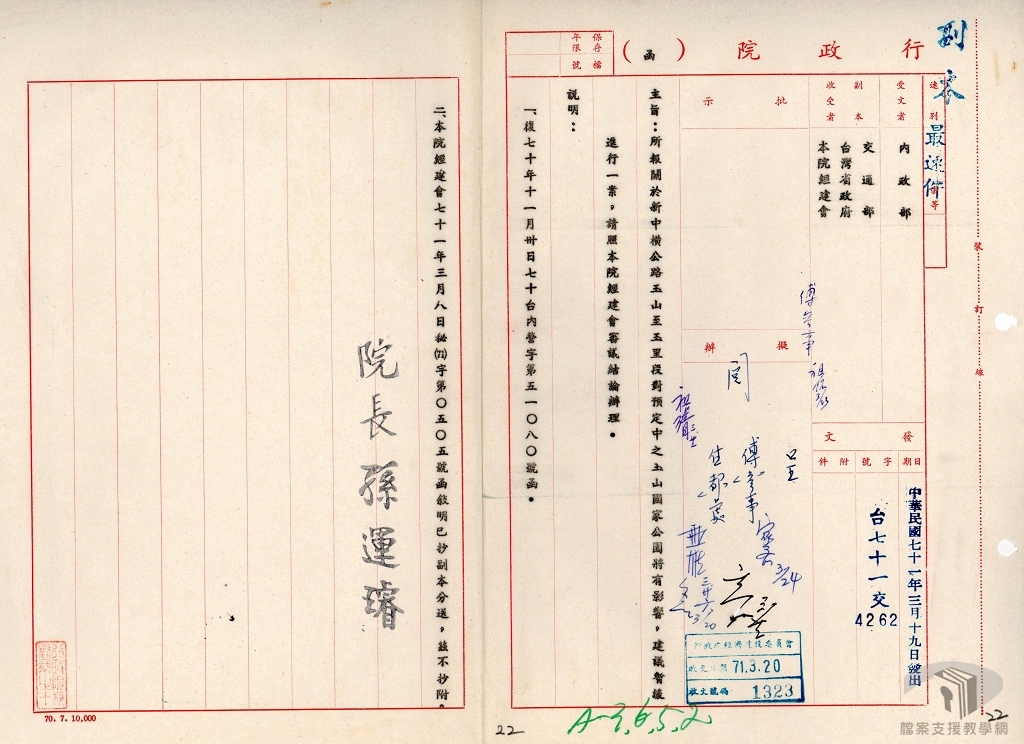 副本
行政院（函）
保存年限
檔號
速別
最速件
受文者
內政部
副本收受者
交通部
台灣省政府
本院經建會
批示
擬辦
發文
日期
字號
附件
中華民國七十一年三月十九日發出
台七十一交
4262
主旨：所報關於新中橫公路玉山至玉里段對預定中之玉山國家公園將有影響，建議暫緩
進行一案，請照本院經建會審議結論辦理。
說明：
一、復七十年十一月卅日七十台內營字第五一〇八〇號函。
二、本院經建會七十一年三月八日秘(71)字第〇五〇五號函敍明已抄副本分送，茲不抄附。
院長 孫運璿
傅參事
閱
傅參事
住都處
3/24
行政院經濟建設委員會
收文日期 71.3.20
收文號碼 1323
裝
訂
線
A-3,6,5,2
22
22
70. 7. 10,000
檔案支援教學網